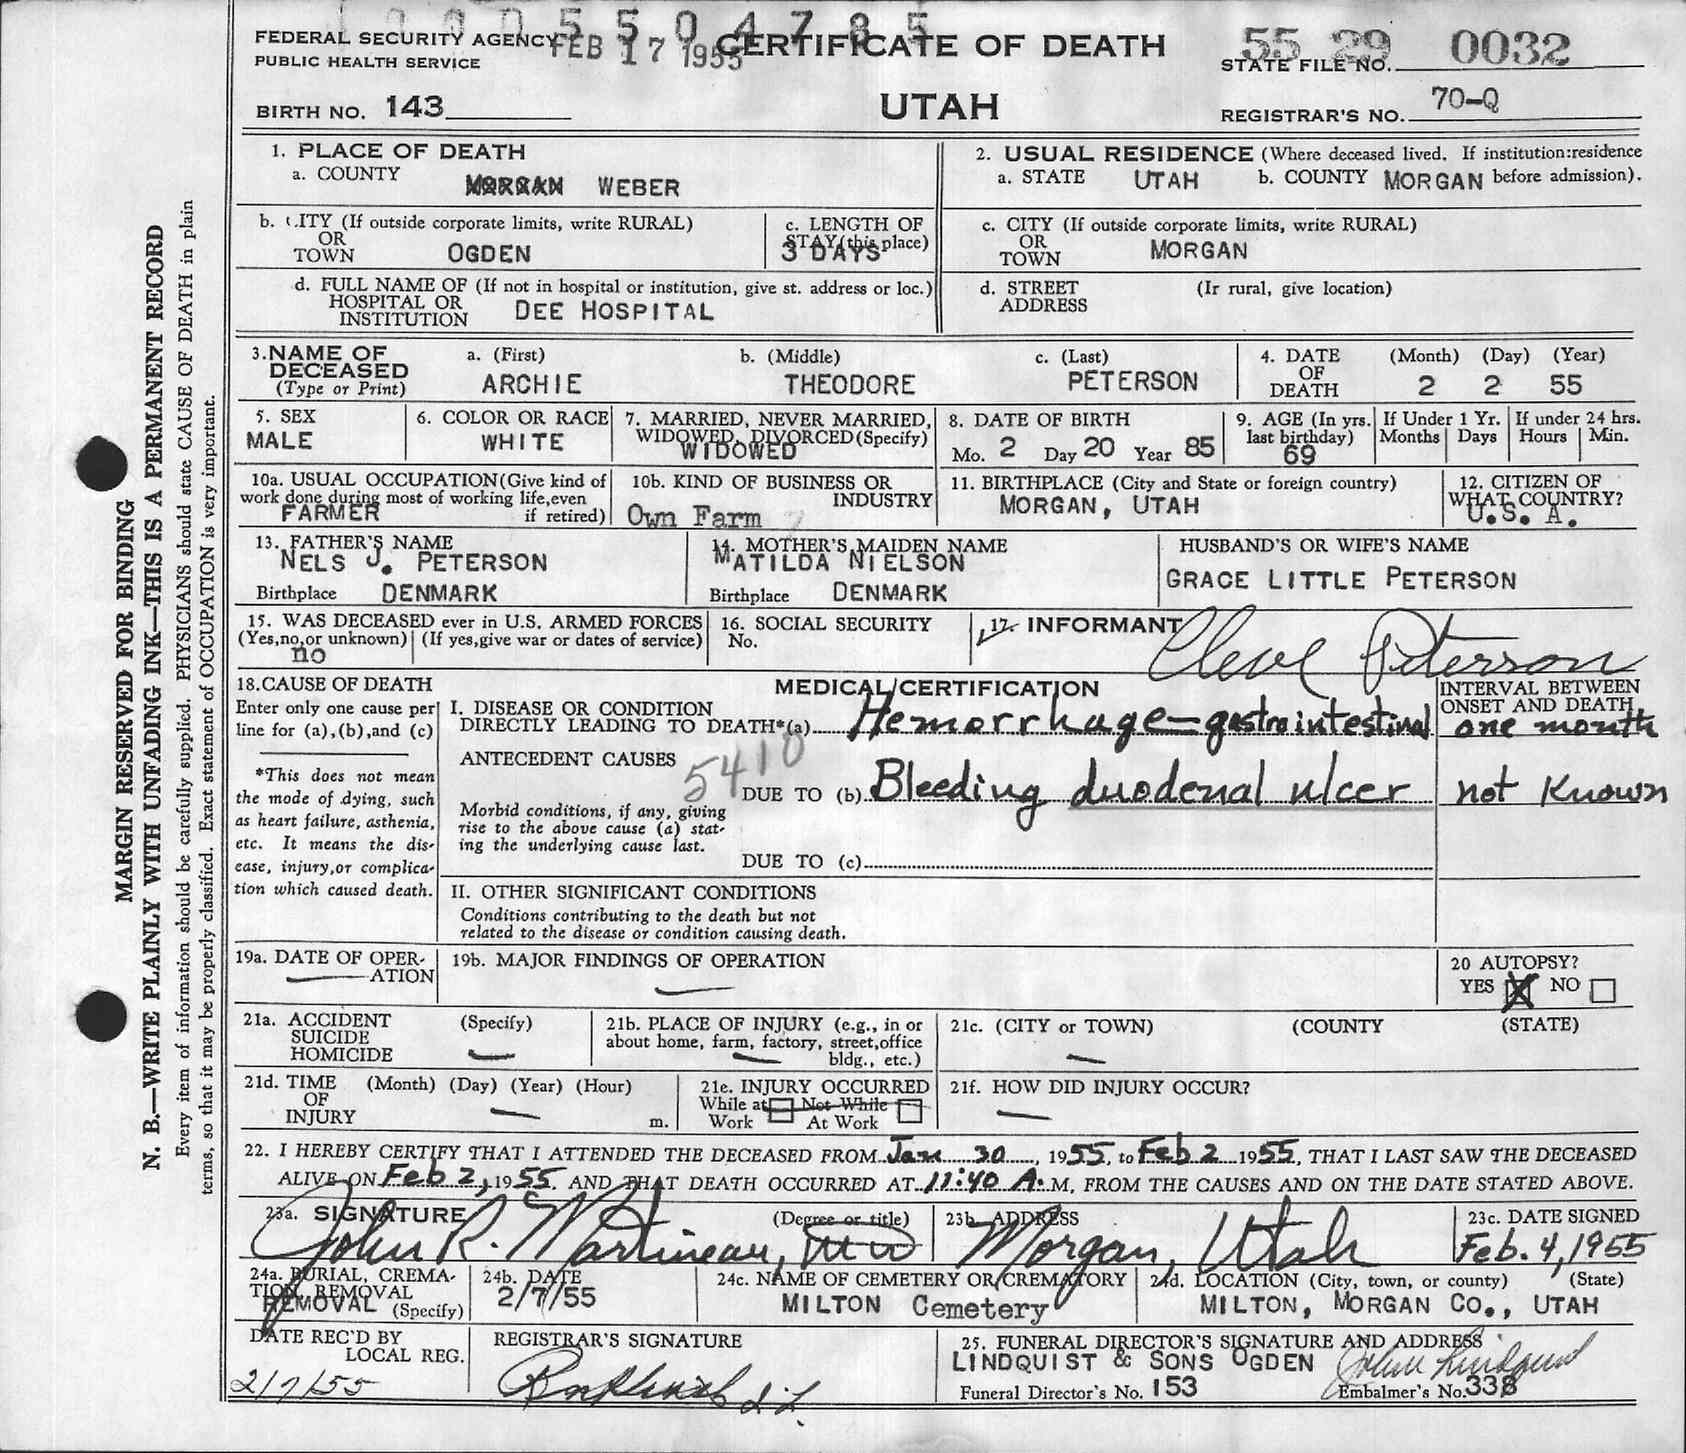 1 0 0 0 5 5 0 4 7 8 5
FEDERAL SECURITY AGENCY FEB 17 1955 CERTIFICATE OF DEATH 55 29 0032
PUBLIC HEALTH SERVICE STATE FILE NO.
BIRTH NO. 143 UTAH REGISTRAR'S NO. 70-Q
MARGIN RESERVED FOR BINDING
N. B.—WRITE PLAINLY WITH UNFADING INK—THIS IS A PERMANENT RECORD
Every item of information should be carefully supplied. PHYSICIANS should state CAUSE OF DEATH in plain
terms, so that it may be properly classified. Exact statement of OCCUPATION is very important.
1. PLACE OF DEATH
a. COUNTY MORGAN WEBER
2. USUAL RESIDENCE (Where deceased lived. If institution:residence
a. STATE UTAH b. COUNTY MORGAN before admission).
b. CITY (If outside corporate limits, write RURAL)
OR
TOWN OGDEN
c. LENGTH OF
STAY (this place)
3 DAYS
c. CITY (If outside corporate limits, write RURAL)
OR
TOWN MORGAN
d. FULL NAME OF (If not in hospital or institution, give st. address or loc.)
HOSPITAL OR
INSTITUTION DEE HOSPITAL
d. STREET (Ir rural, give location)
ADDRESS
3. NAME OF DECEASED (Type or Print)
a. (First) b. (Middle) c. (Last)
ARCHIE THEODORE PETERSON
4. DATE OF DEATH (Month) (Day) (Year)
2 2 55
5. SEX
MALE
6. COLOR OR RACE
WHITE
7. MARRIED, NEVER MARRIED,
WIDOWED, DIVORCED (Specify)
WIDOWED
8. DATE OF BIRTH
Mo. 2 Day 20 Year 85
9. AGE (In yrs. last birthday)
69
If Under 1 Yr. If under 24 hrs.
Months Days Hours Min.
10a. USUAL OCCUPATION (Give kind of
work done during most of working life, even
FARMER if retired)
10b. KIND OF BUSINESS OR
INDUSTRY
Own Farm
11. BIRTHPLACE (City and State or foreign country)
MORGAN, UTAH
12. CITIZEN OF
WHAT COUNTRY?
U.S. A.
13. FATHER'S NAME
NELS J. PETERSON
Birthplace DENMARK
14. MOTHER'S MAIDEN NAME
MATILDA NIELSON
Birthplace DENMARK
HUSBAND'S OR WIFE'S NAME
GRACE LITTLE PETERSON
15. WAS DECEASED ever in U.S. ARMED FORCES
(Yes,no,or unknown) (If yes,give war or dates of service)
no
16. SOCIAL SECURITY
No.
17. INFORMANT Cleve Peterson
18. CAUSE OF DEATH
Enter only one cause per
line for (a),(b),and (c)
*This does not mean
the mode of dying, such
as heart failure, asthenia,
etc. It means the dis-
ease, injury,or complica-
tion which caused death.
MEDICAL CERTIFICATION
INTERVAL BETWEEN
ONSET AND DEATH
I. DISEASE OR CONDITION
DIRECTLY LEADING TO DEATH*(a) Hemorrhage—gastrointestinal one month
ANTECEDENT CAUSES 5410
DUE TO (b) Bleeding duodenal ulcer not Known
Morbid conditions, if any, giving
rise to the above cause (a) stat-
ing the underlying cause last.
DUE TO (c)
II. OTHER SIGNIFICANT CONDITIONS
Conditions contributing to the death but not
related to the disease or condition causing death.
19a. DATE OF OPER-
ATION —
19b. MAJOR FINDINGS OF OPERATION
—
20 AUTOPSY?
YES X NO
21a. ACCIDENT (Specify)
SUICIDE
HOMICIDE —
21b. PLACE OF INJURY (e.g., in or
about home, farm, factory, street,office
— bldg., etc.)
21c. (CITY or TOWN) (COUNTY (STATE)
—
21d. TIME (Month) (Day) (Year) (Hour)
OF
INJURY — m.
21e. INJURY OCCURRED
While at Not While
Work At Work
21f. HOW DID INJURY OCCUR?
—
22. I HEREBY CERTIFY THAT I ATTENDED THE DECEASED FROM Jan 30, 1955, to Feb 2 1955, THAT I LAST SAW THE DECEASED
ALIVE ON Feb 2, 1955. AND THAT DEATH OCCURRED AT 11:40 A. M, FROM THE CAUSES AND ON THE DATE STATED ABOVE.
23a. SIGNATURE (Degree or title)
John R. Martineau, MD
23b. ADDRESS
Morgan, Utah
23c. DATE SIGNED
Feb. 4, 1955
24a. BURIAL, CREMA-
TION, REMOVAL
REMOVAL (Specify)
24b. DATE
2/7/55
24c. NAME OF CEMETERY OR CREMATORY
MILTON Cemetery
24d. LOCATION (City, town, or county) (State)
MILTON, MORGAN CO., UTAH
DATE REC'D BY
LOCAL REG.
2/7/55
REGISTRAR'S SIGNATURE
25. FUNERAL DIRECTOR'S SIGNATURE AND ADDRESS
LINDQUIST & SONS OGDEN John Lindquist
Funeral Director's No. 153 Embalmer's No. 338